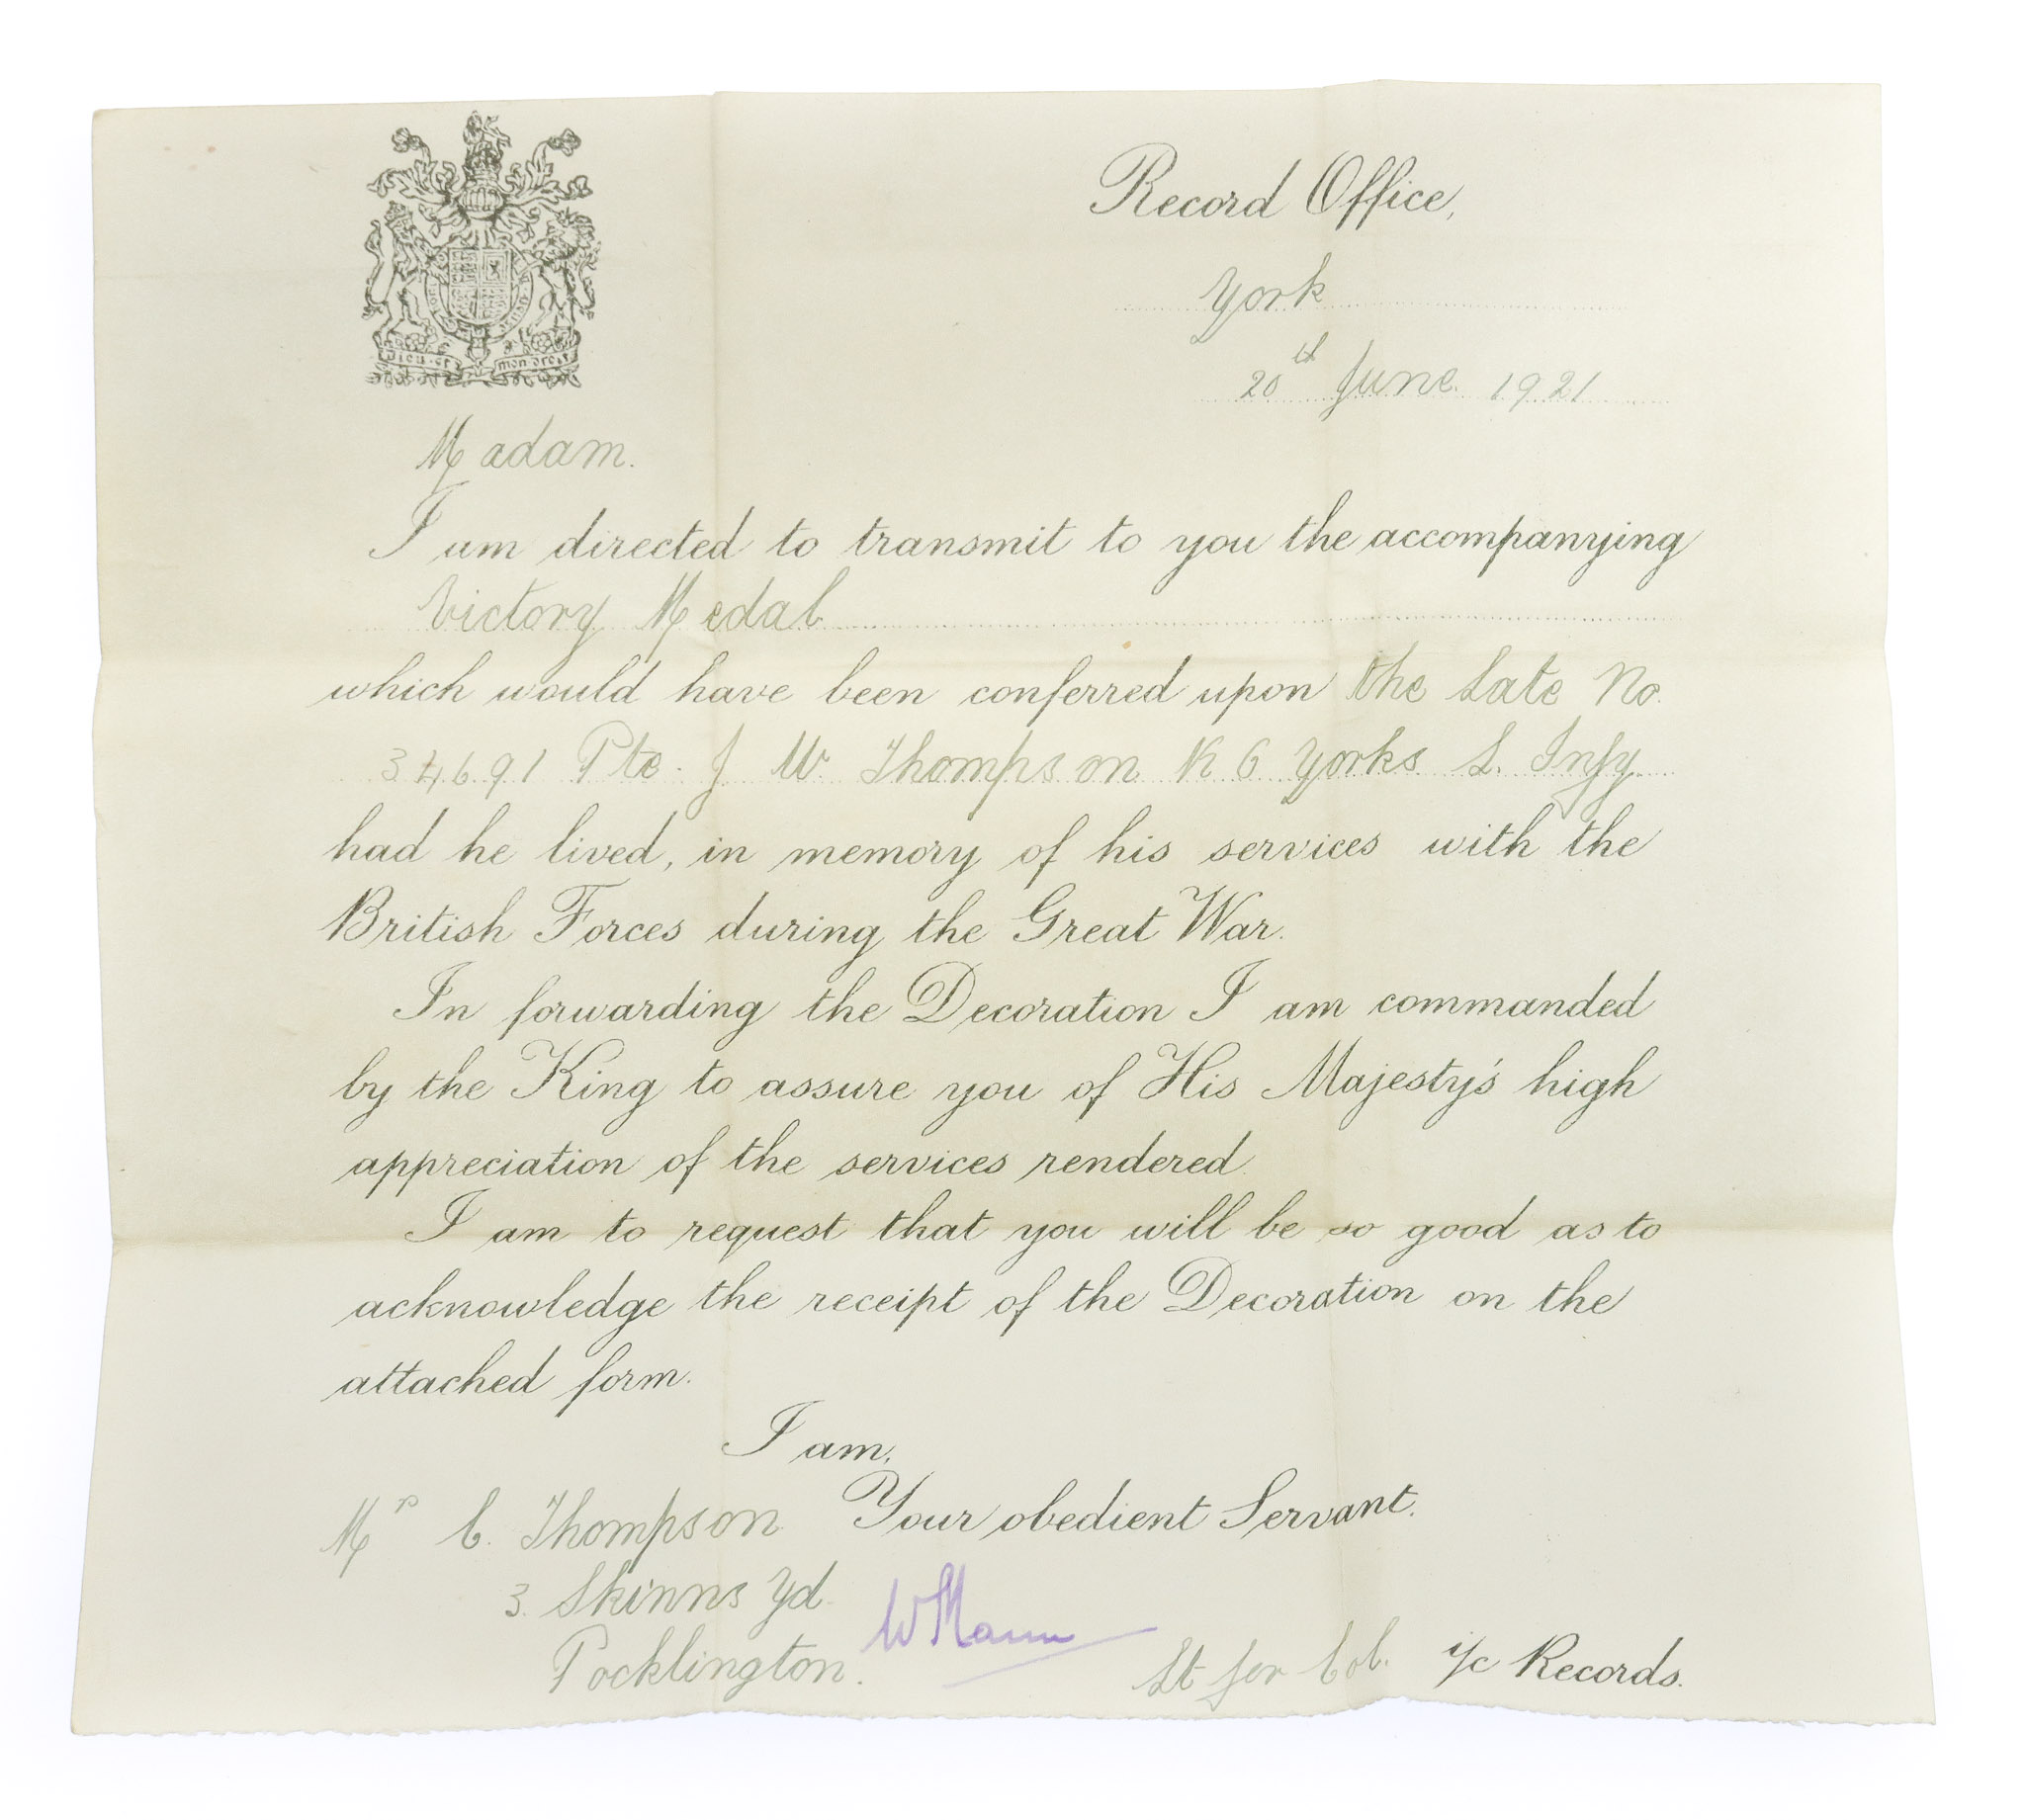 Dieu et mon droit
Record Office,
York
20th June. 1921
Madam.
I am directed to transmit to you the accompanying
Victory Medal
which would have been conferred upon the Late No.
34691 Pte. J W. Thompson K O Yorks L. Infy
had he lived, in memory of his services with the
British Forces during the Great War.
In forwarding the Decoration I am commanded
by the King to assure you of His Majesty's high
appreciation of the services rendered.
I am to request that you will be so good as to
acknowledge the receipt of the Decoration on the
attached form.
I am,
Your obedient Servant.
Mrs C. Thompson
3. Skinns Yd.
Pocklington.
Lt for Col. i/c Records.